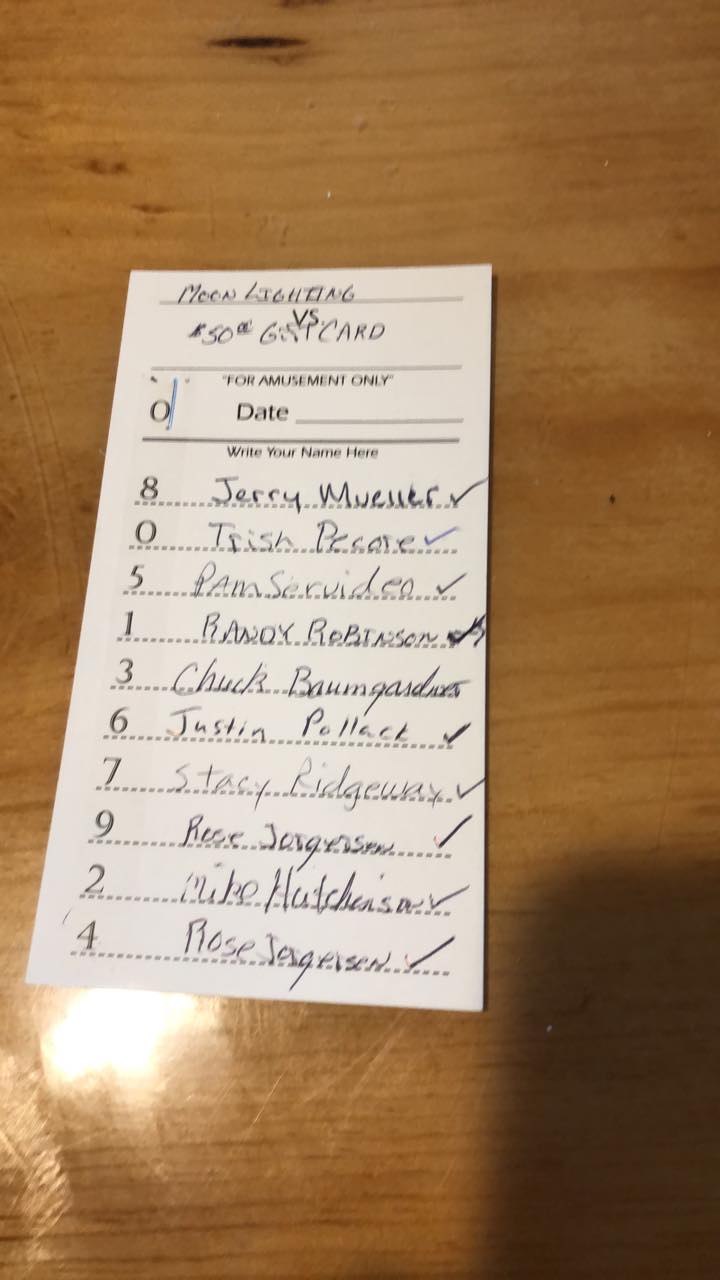 MOON LIGHTING
VS.
$50 GIFT CARD
"FOR AMUSEMENT ONLY"
0 Date
Write Your Name Here
8 Jerry Mueller ✓
0 Trish Pecore ✓
5 PAM Servideo ✓
1 RANDY ROBINSON ✓
3 Chuck Baumgardner
6 Justin Pollack ✓
7 Stacy Ridgeway ✓
9 Rose Jorgensen ✓
2 Mike Hutchinson ✓
4 Rose Jorgensen ✓